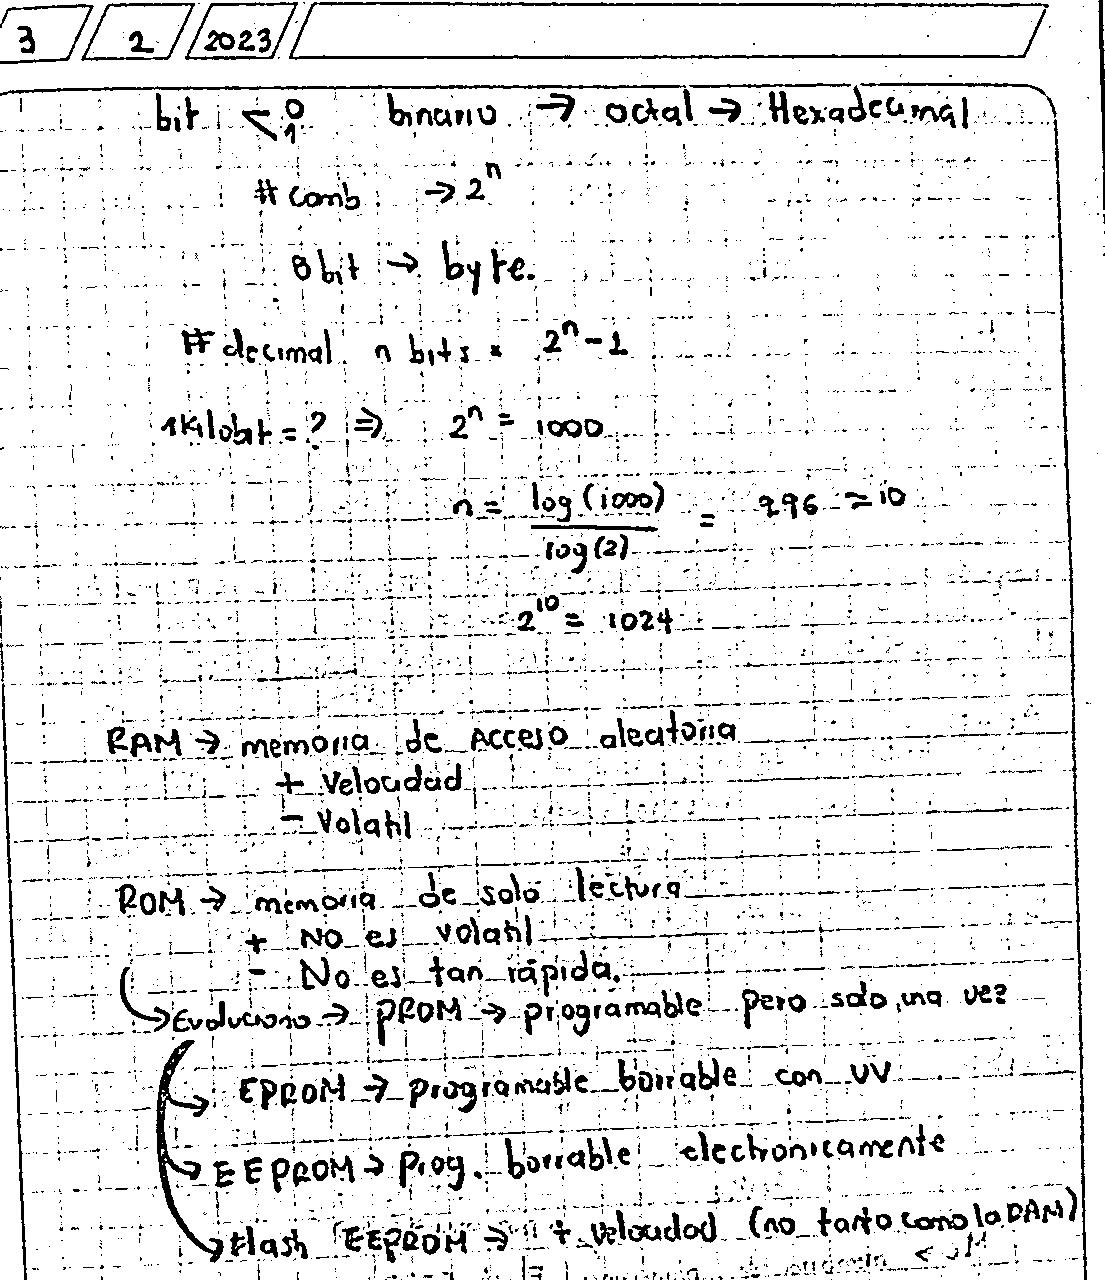 3 2 2023
bit < 0 binario → octal → Hexadecimal
1
# comb. → 2^n
8 bit → byte.
# decimal n bits = 2^n - 1
1Kilobit = ? ⇒ 2^n = 1000
n = log(1000) / log(2) = 9.96 ≈ 10
2^10 = 1024
RAM → memoria de Acceso aleatoria
+ Velocidad
- Volatil
ROM → memoria de solo lectura
+ No es volatil
- No es tan rápida.
Evoluciono → PROM → programable pero solo una vez
EPROM → programable borrable con UV
EEPROM → Prog. borrable electronicamente
Flash EEPROM → " + velocidad (no tanto como la RAM)